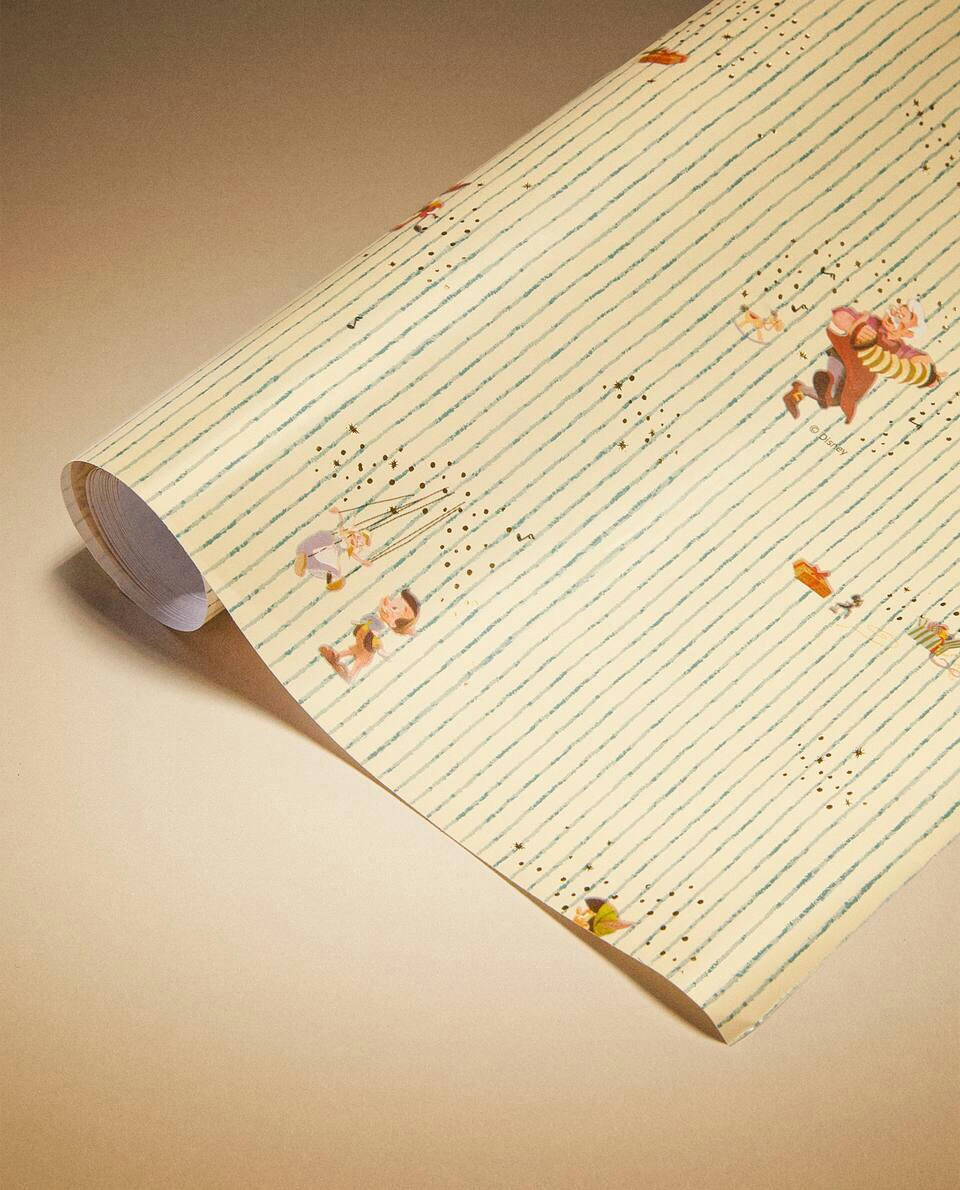 © Disney